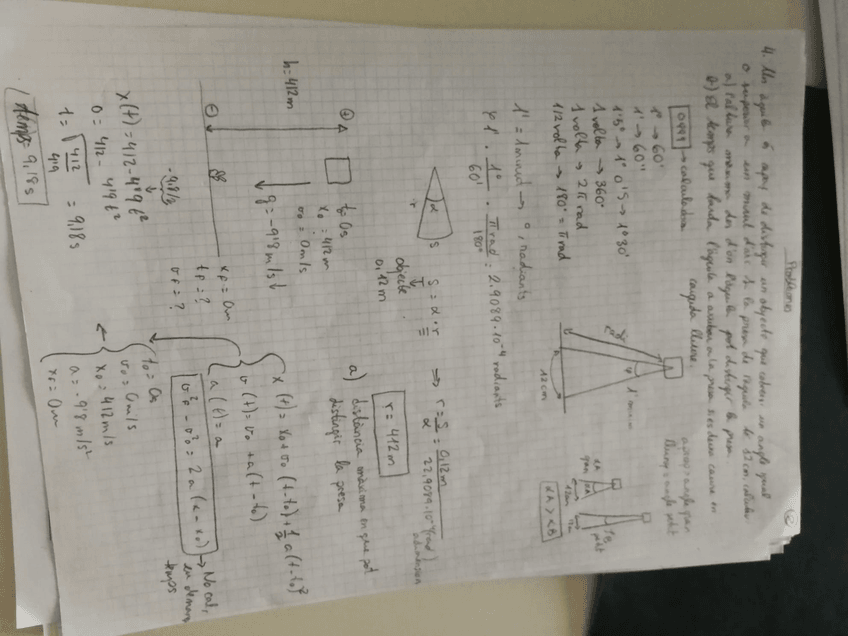 Problemes
4. Un àguila és capaç de distingir un objecte que cobreix un angle igual
o superior a un minut d'arc. Si la presa de l'àguila fa 12 cm, calculeu
a) l'altura màxima des d'on l'àguila pot distingir la presa.
b) El temps que tarda l'àguila a arribar a la presa si es deixa caure en
caiguda lliure.
→ calculadora
1° → 60'
1' → 60''
1'5° → 1° 0'5 → 1° 30'
1 volta → 360°
1 volta → 2π rad
1/2 volta → 180° = π rad
1' = 1 minut → °, radiants
1' · 1°/60' · π rad/180° = 2.9089·10⁻⁴ radiants
12 cm
1' minut
a prop = angle gran
lluny = angle petit
gran
petit
α
r
s
s = α · r
objecte
0,12 m
⇒ r = s/α = 0,12m / 2,9089·10⁻⁴ (rad)
adimensional
r = 412 m
a) distància màxima en que pot
distingir la presa
h = 412 m
⊕
⊖
t₀ = 0s
x₀ = 412 m
v₀ = 0 m/s
g = -9'8 m/s² ↓
x_f = 0m
t_f = ?
v_f = ?
x(t) = x₀ + v₀ (t-t₀) + ½ a (t-t₀)²
v(t) = v₀ + a (t-t₀)
a(t) = a
v_f² - v₀² = 2a (x - x₀) → No cal,
en demana
temps
t₀ = 0s
v₀ = 0 m/s
x₀ = 412 m/s
a = -9'8 m/s²
x_f = 0 m
-9,8/2
x(t) = 412 - 4'9 t²
0 = 412 - 4'9 t²
t = √(412/4'9) = 9,18 s
temps = 9,18 s